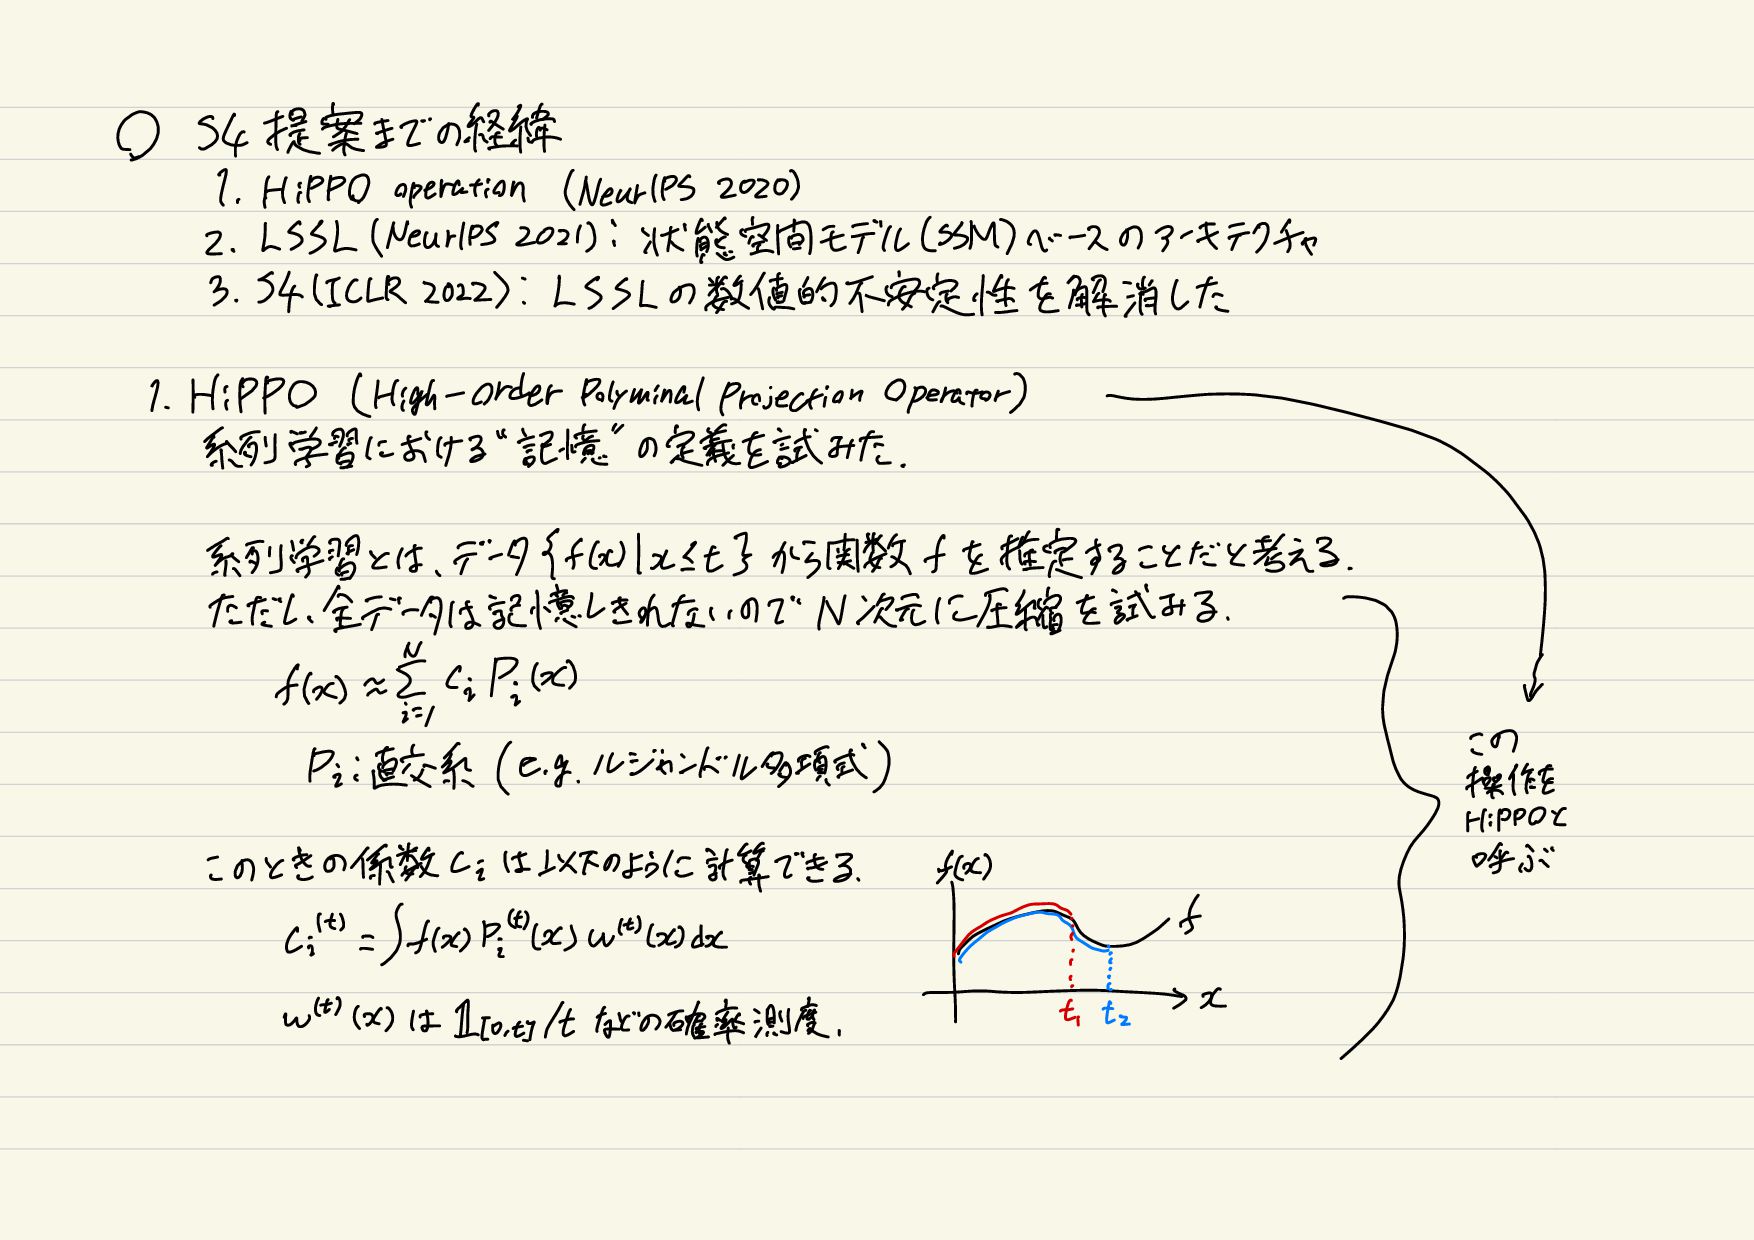 ○ S4 提案までの経緯
1. HiPPO operation (NeurIPS 2020)
2. LSSL (NeurIPS 2021): 状態空間モデル(SSM)ベースのアーキテクチャ
3. S4 (ICLR 2022): LSSLの数値的不安定性を解消した
1. HiPPO (High-order Polyminal Projection Operator)
系列学習における“記憶”の定義を試みた.
系列学習とは、データ{f(x)|x≤t}から関数fを推定することだと考える.
ただし、全データは記憶しきれないのでN次元に圧縮を試みる.
f(x) ≈ Σ_{i=1}^{N} c_i P_i(x)
P_i: 直交系 (e.g. ルジャンドル多項式)
このときの係数c_iは以下のように計算できる.
c_i^{(t)} = ∫f(x) P_i^{(t)}(x) w^{(t)}(x)dx
w^{(t)}(x)は 𝟙_{[0,t]}/t などの確率測度.
f(x)
f
x
t₁
t₂
この
操作を
HiPPOと
呼ぶ